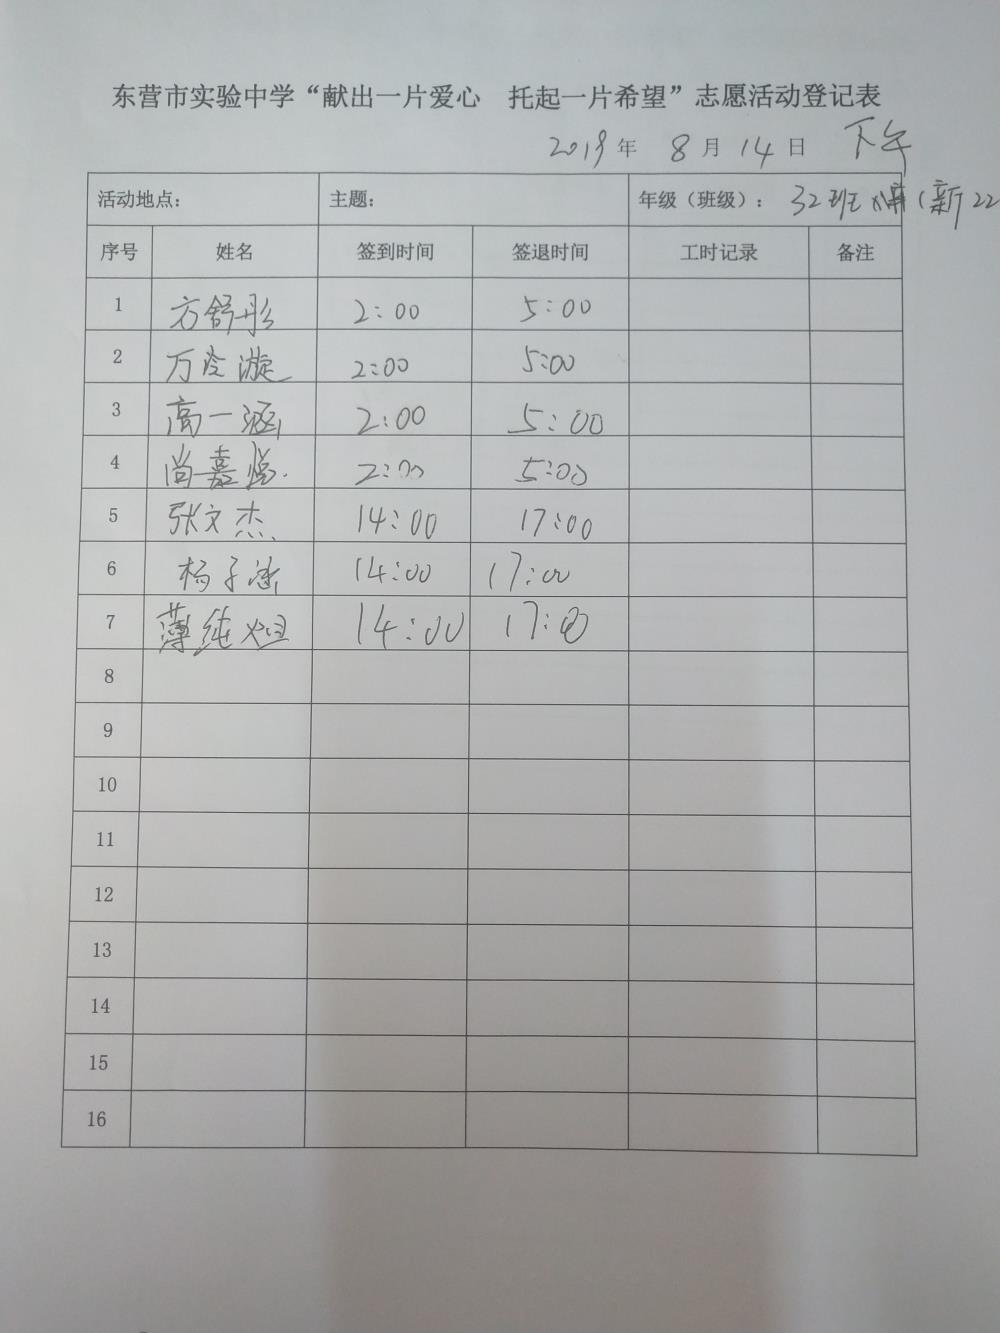 东营市实验中学“献出一片爱心 托起一片希望”志愿活动登记表
2019年 8月14日 下午
活动地点： 主题： 年级（班级）： 32班 （新22
序号 姓名 签到时间 签退时间 工时记录 备注
1 方舒彤 2:00 5:00
2 万凌漩 2:00 5:00
3 高一涵 2:00 5:00
4 尚嘉悦 2:00 5:00
5 张文杰 14:00 17:00
6 杨子涵 14:00 17:00
7 薄纯烜 14:00 17:00
8
9
10
11
12
13
14
15
16